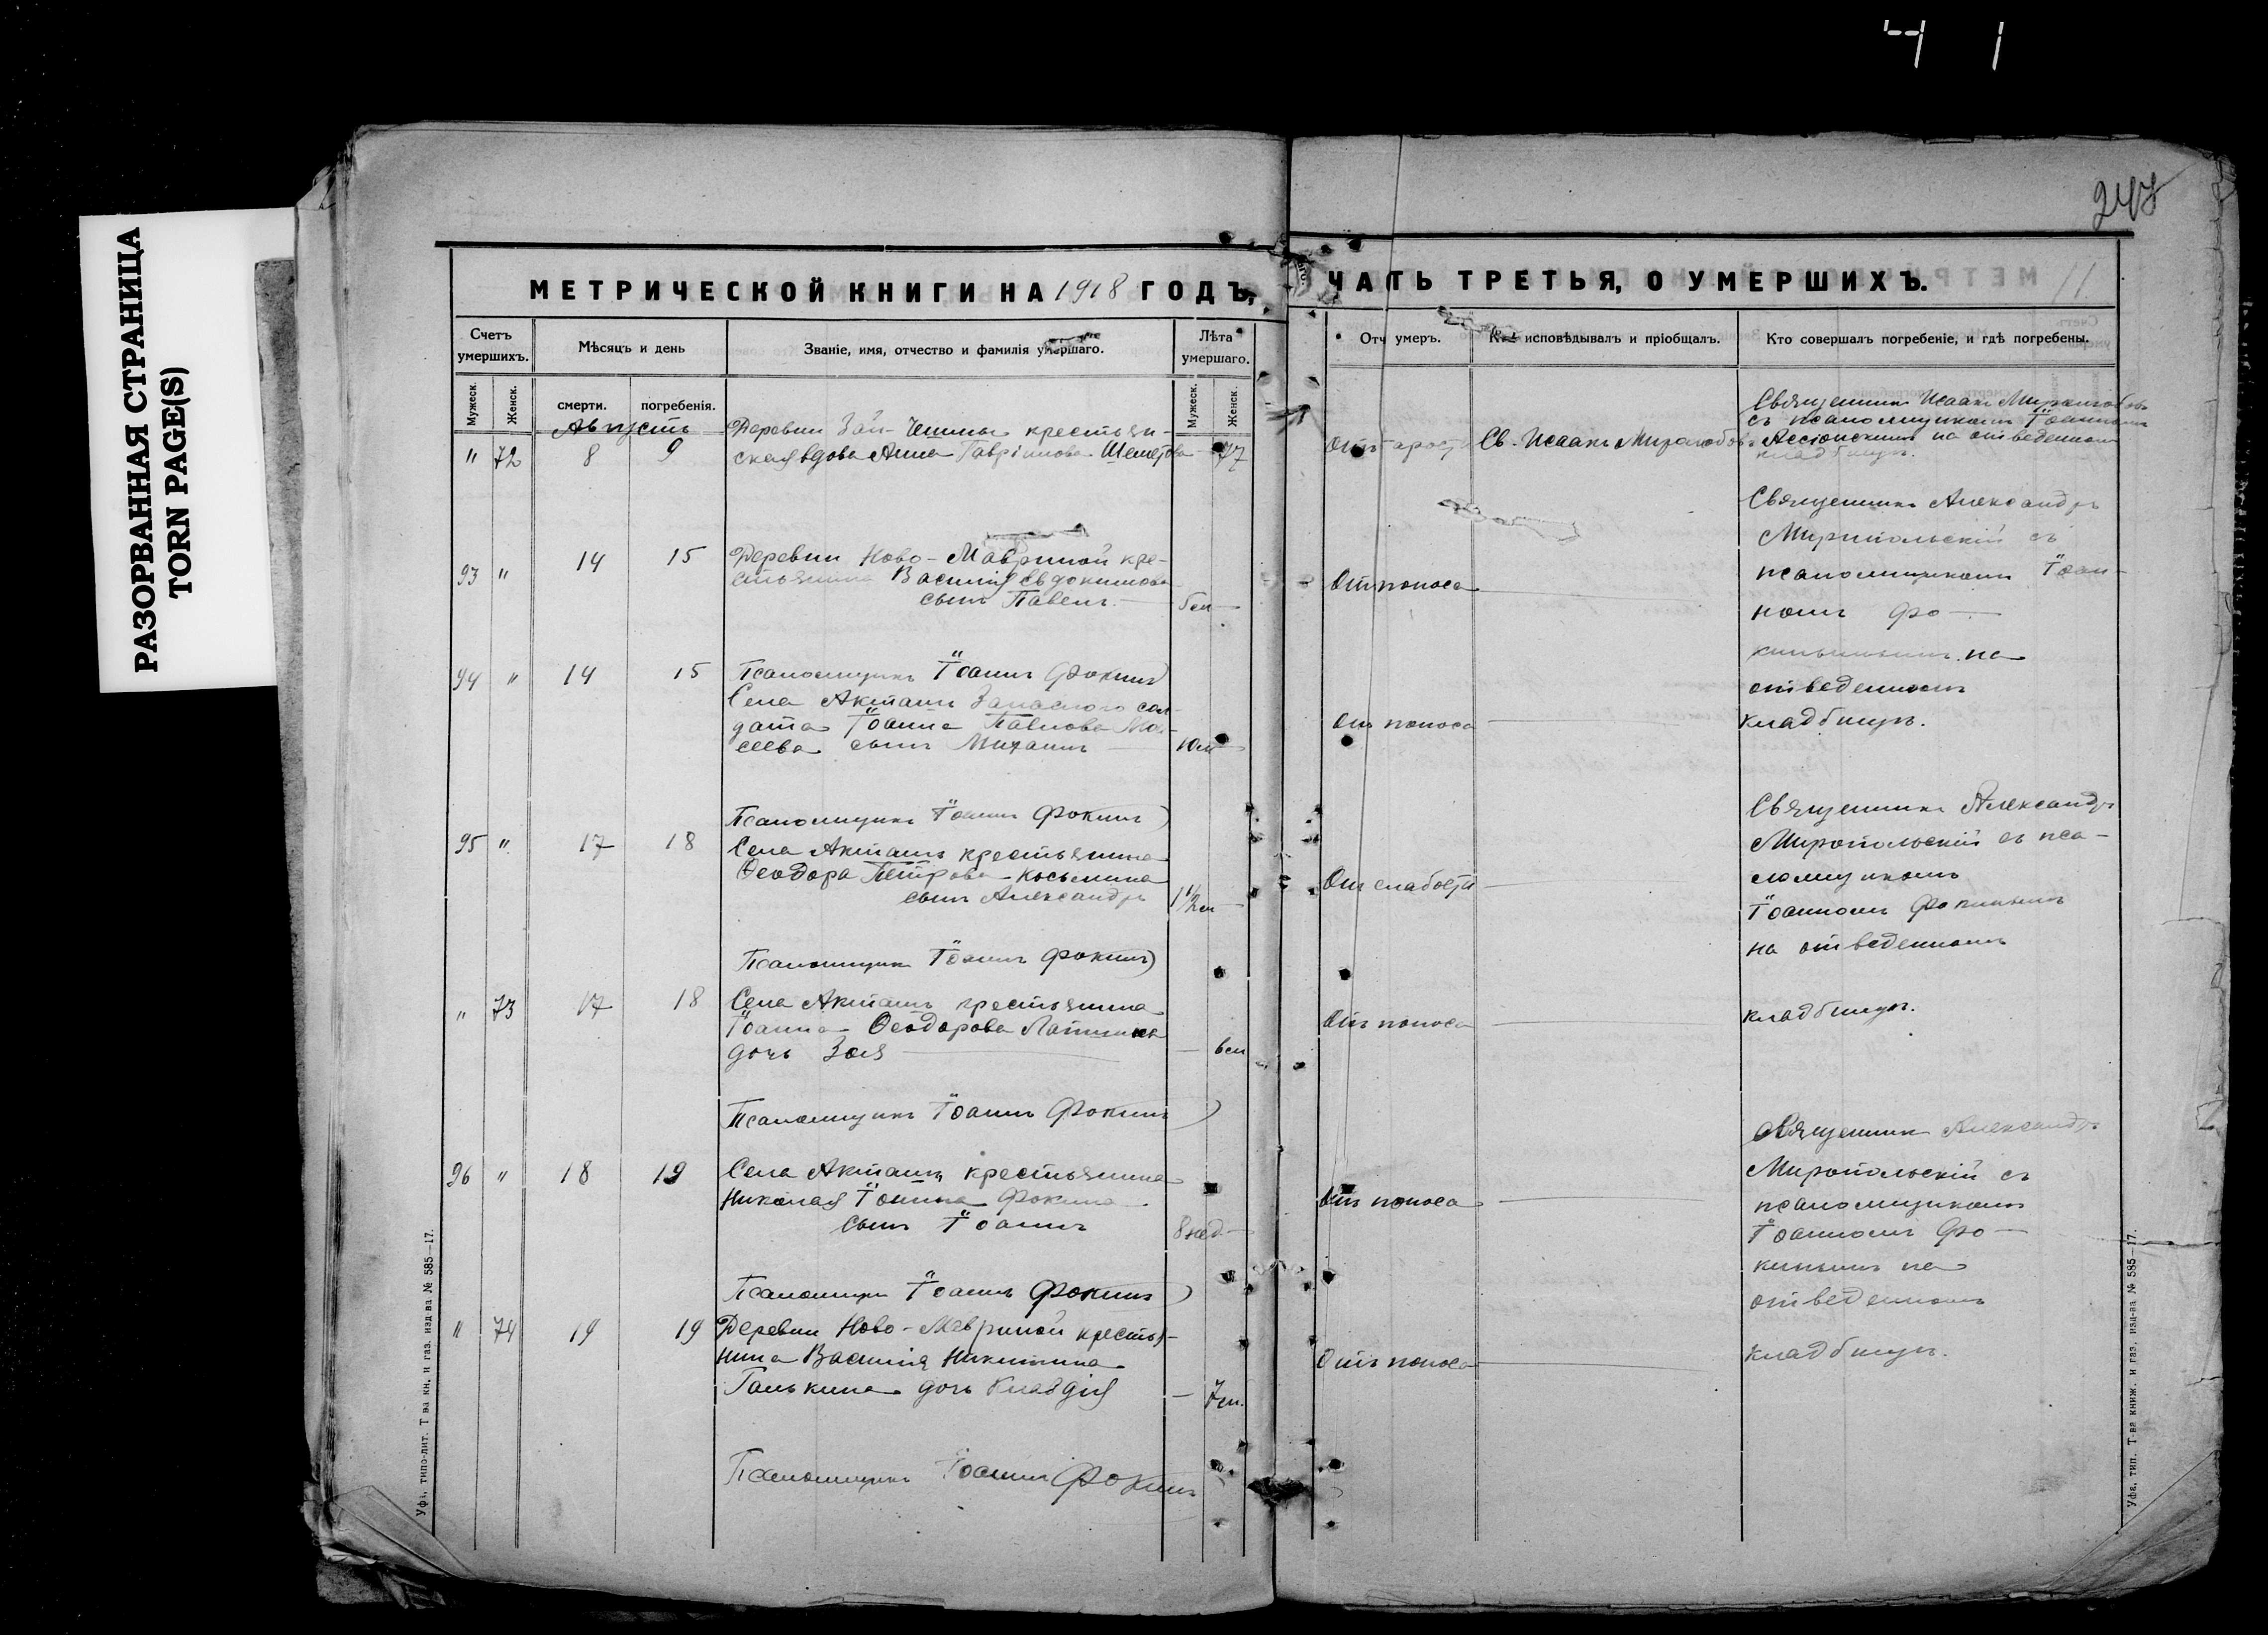 РАЗОРВАННАЯ СТРАНИЦА
TORN PAGE(S)
МЕТРИЧЕСКОЙ КНИГИ НА 1918 ГОДЪ,
Счетъ умершихъ.
Мѣсяцъ и день
Званіе, имя, отчество и фамилія умершаго.
Лѣта умершаго.
Мужеск.
Женск.
смерти.
погребенія.
Мужеск.
Женск.
Августъ
" 72 8 9
Деревни Зай-Чешмы крестьян-
ская вдова Анна Гавріилова Шеметова 77
93 " 14 15
Деревни Ново-Мавриной кре-
стьянина Василія Евдокимова
сынъ Павелъ
Псаломщикъ Іоаннъ Фокинъ
94 " 14 15
Села Акташъ Запаснаго сол-
дата Іоанна Павлова Мо-
сеева сынъ Михаилъ 10м
Псаломщикъ Іоаннъ Фокинъ
95 " 17 18
Села Акташъ крестьянина
Ѳеодора Петрова Косьмина
сынъ Александръ 1 1/2 м
Псаломщикъ Іоаннъ Фокинъ
" 73 17 18
Села Акташъ крестьянина
Іоанна Ѳеодорова
дочь Зоя 6м
Псаломщикъ Іоаннъ Фокинъ
96 " 18 19
Села Акташъ крестьянина
Николая Іоанна Фокина
сынъ Іоаннъ 8 нед
Псаломщикъ Іоаннъ Фокинъ
" 74 19 19
Деревни Ново-Мавриной крестья-
нина Василія Никитина
Ганькина дочь Клавдія 7м.
Псаломщикъ Іоаннъ Фокинъ
Уфа, типо-лит. Т ва кн. и газ. изд ва № 585—17.
247
ЧАСТЬ ТРЕТЬЯ, О УМЕРШИХЪ.
11
Отч умеръ.
Кто исповѣдывалъ и пріобщалъ.
Кто совершалъ погребеніе, и гдѣ погребены.
Св. Исаакъ Миролюбовъ
Священникъ Исаакъ Миролюбовъ
съ псаломщикомъ Іоанномъ
на отведенномъ
кладбищѣ.
Отъ поноса
Священникъ Александръ
Миропольскій съ
псаломщикомъ Іоан-
номъ Фо-
кинымъ на
отведенномъ
кладбищѣ.
Отъ поноса
Отъ слабости
Священникъ Александръ
Миропольскій съ пса-
ломщикомъ
Іоанномъ Фокинымъ
на отведенномъ
кладбищѣ.
Отъ поноса
Отъ поноса
Священникъ Александръ
Миропольскій съ
псаломщикомъ
Іоанномъ Фо-
кинымъ на
отведенномъ
кладбищѣ.
Отъ поноса
Уфа, тип. Т-ва книж. и газ. изд-ва № 585—17.